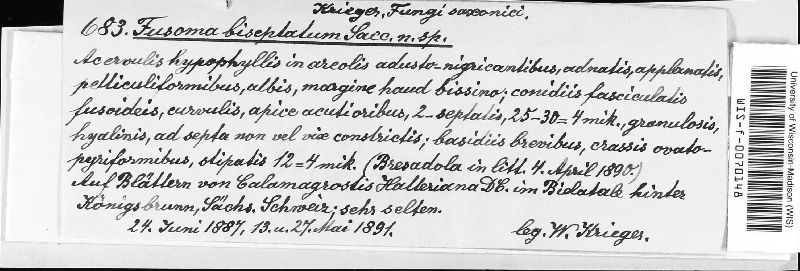 Krieger, Fungi saxonici.
683. Fusoma biseptatum Sacc. n. sp.
Acervulis hypophyllis in areolis adusto-nigricantibus, adnatis, applanatis,
pelliculiformibus, albis, margine haud bissino; conidiis fasciculatis
fusoideis, curvulis, apice acutioribus, 2-septatis, 25-30=4 mik., granulosis,
hyalinis, ad septa non vel vix constrictis; basidiis brevibus, crassis ovato-
pyriformibus, stipatis 12=4 mik. (Bresadola in litt. 4. April 1890.)
Auf Blättern von Calamagrostis Halleriana DC. im Bielatale hinter
Königsbrunn, Sächs. Schweiz; sehr selten.
24. Juni 1887, 13. u. 27. Mai 1891. leg. W. Krieger.
University of Wisconsin-Madison (WIS)
WIS-F-0070148